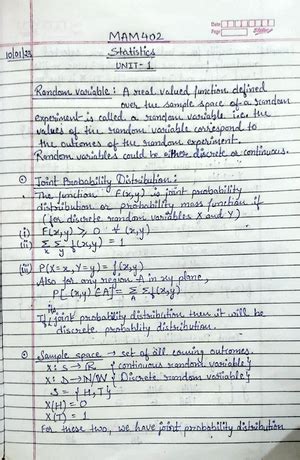 Date
Page
MAM402
10/01/23
Statistics
UNIT-1
Random variable: A real valued function defined
over the sample space of a random
experiment is called a random variable i.e. the
values of the random variable correspond to
the outcomes of the random experiment.
Random variables could be either discrete or continuous.
Joint Probability Distribution:
The function F(x,y) is joint probability
distribution or probability mass function if
(for discrete random variables X and Y)
(i) F(x,y) ≥ 0 ∀ (x,y)
(ii) Σx Σy f(x,y) = 1
(iii) P(X=x, Y=y) = f(x,y)
Also for any region A in xy plane,
P[(x,y) ∈ A] = Σ Σ f(x,y)
If joint probability distribution then it will be
discrete probablity distribution.
Sample space → set of all outcomes.
X: S → R {continuous random variable}
X: S → N/W {Discrete random variable}
S = {H,T}
X(H) = 0
X(T) = 1
For these two, we have joint probability distribution